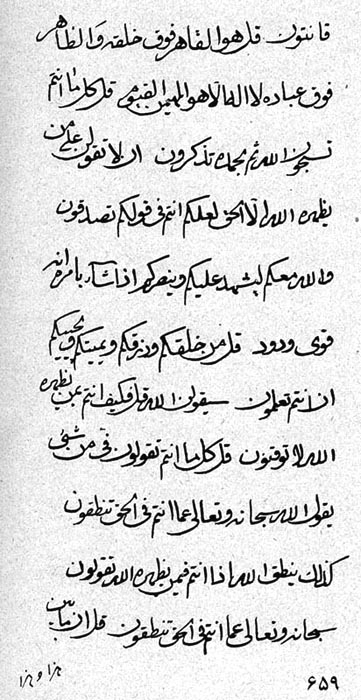 قانتون قل هو القاهر فوق خلقه والظاهر
فوق عباده لا اله الا هو المهيمن القيوم قل كل ما انتم
تسبحون الله ثم بحمده تذكرون ان لا تقولن على من
يظهره الله الا الحق لعلكم انتم فى قولكم تصدقون
والله معكم ليشهد عليكم وينصركم اذا شاء بامره انه
قوى ودود قل من خلقكم ورزقكم ويميتكم ويحييكم
ان انتم تعلمون سيقولن الله قل فكيف انتم بمن يظهره
الله لا توقنون قل كل ما انتم تقولون فى من شئ
يقول الله سبحانه وتعالى عما انتم فى الحق تنطقون
كذلك ينطق الله اذا انتم فيمن يظهره الله تقولون
سبحانه وتعالى عما انتم فى الحق تنطقون قل ان ما بين
هزا و هزا
۶۵۹